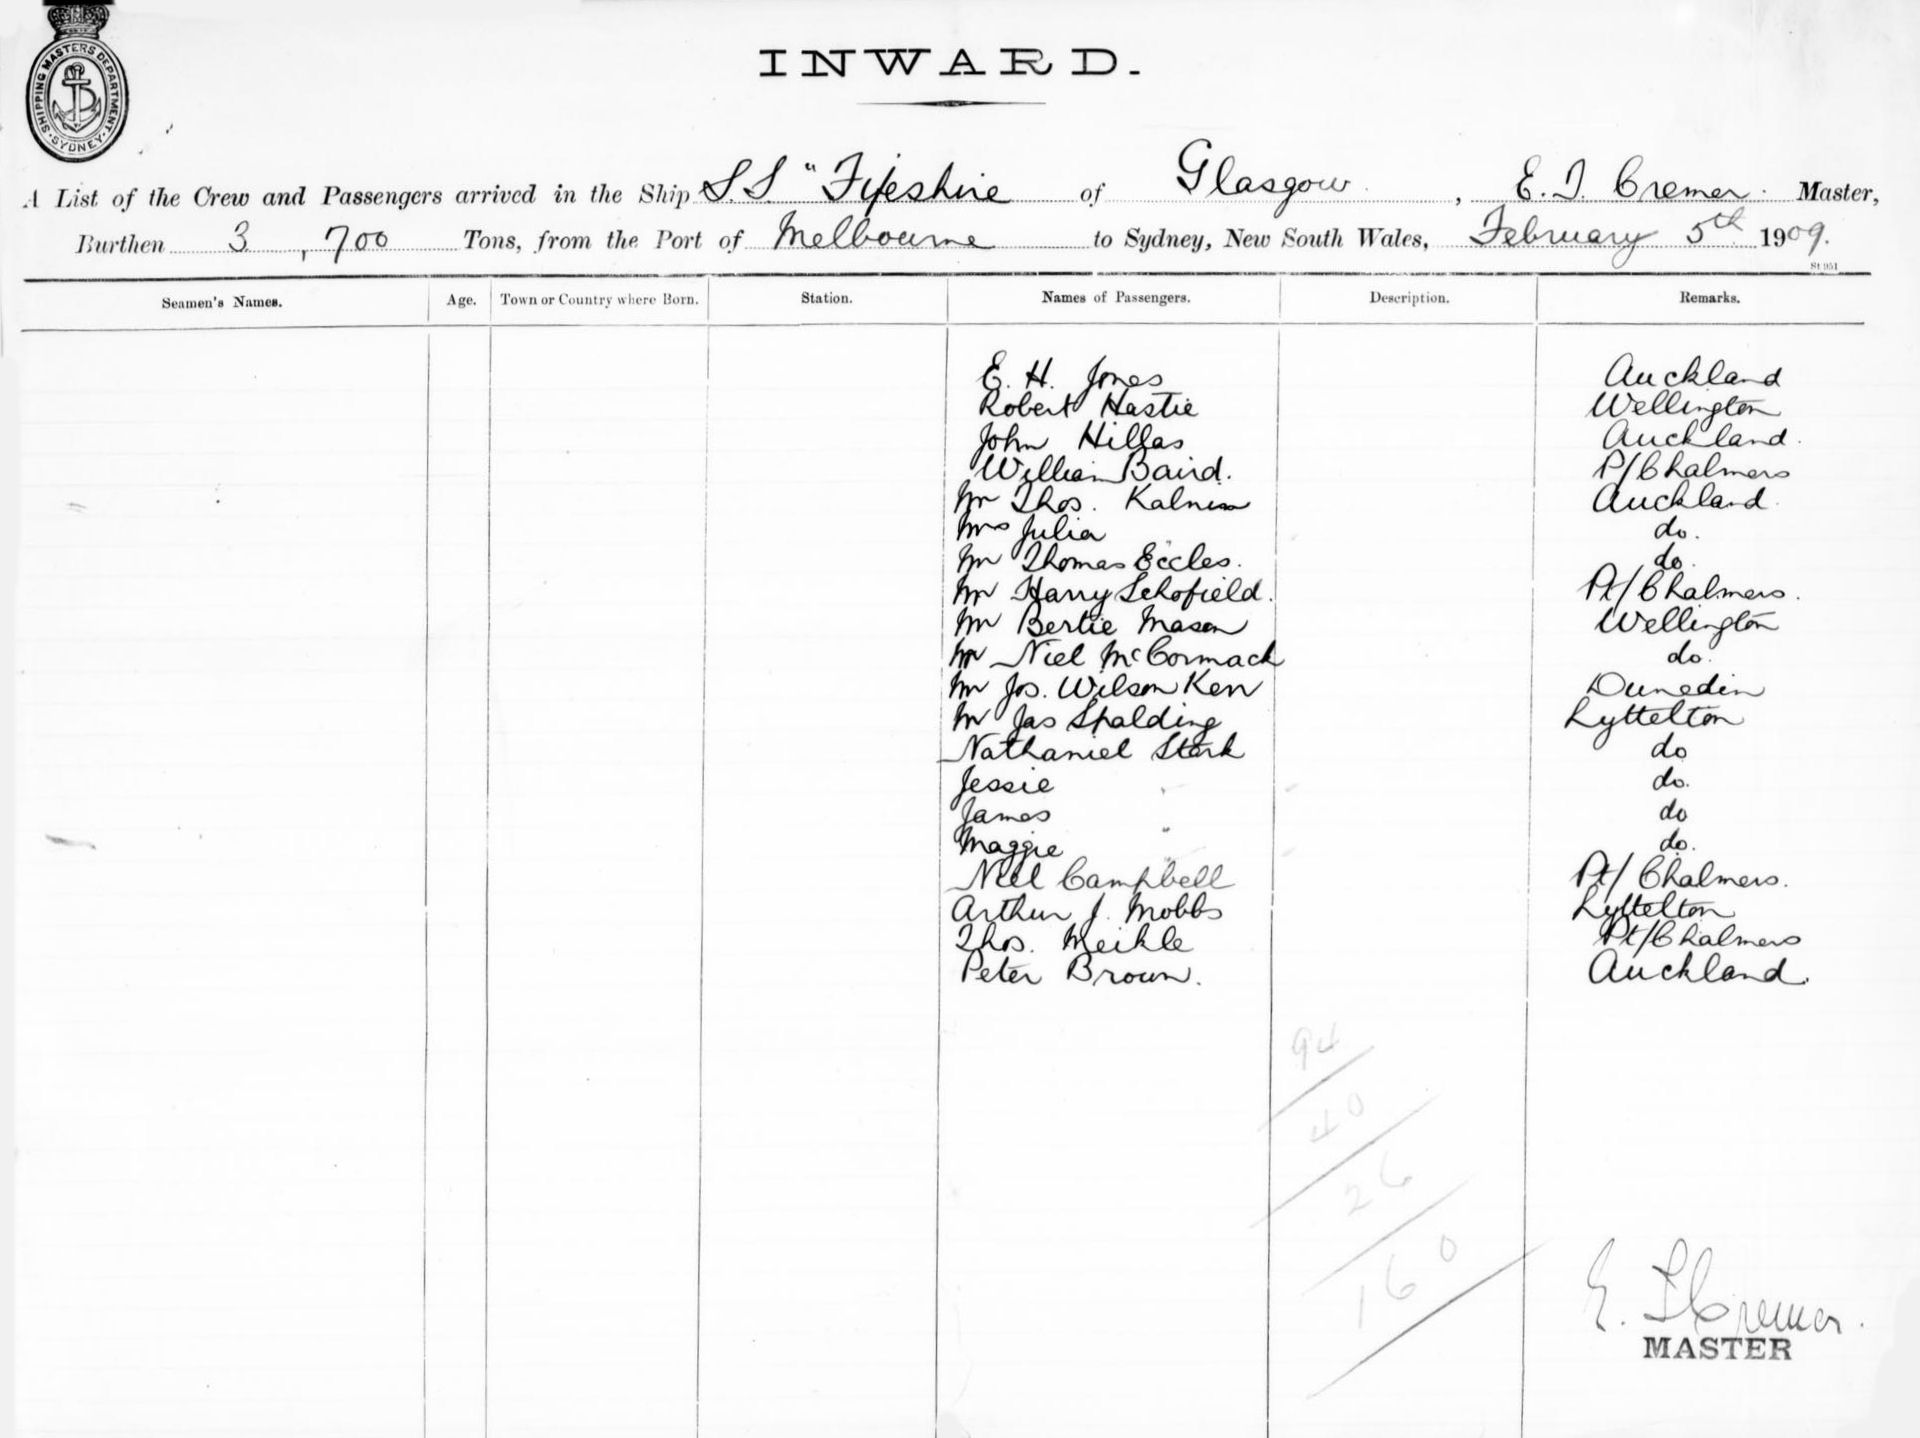 SHIPPING MASTERS DEPARTMENT · SYDNEY ·
INWARD.
A List of the Crew and Passengers arrived in the Ship S.S. "Fifeshire of Glasgow, E. T. Cremer. Master,
Burthen 3,700 Tons, from the Port of Melbourne to Sydney, New South Wales, February 5th 1909.
St 951
Seamen's Names. Age. Town or Country where Born. Station. Names of Passengers. Description. Remarks.
E. H. Jones Auckland
Robert Hastie Wellington
John Hillas Auckland.
William Baird. P/Chalmers
Mr Thos. Auckland.
Mrs Julia " do.
Mr Thomas Eccles. do.
Mr Harry Schofield. Pt/Chalmers.
Mr Bertie Mason Wellington
Mr Niel McCormack do.
Mr Jos. Wilson Kerr Dunedin
Mr Jas Spalding Lyttelton
Nathaniel Stark do
Jessie " do.
James " do
Maggie " do.
Niel Campbell Pt/Chalmers.
Arthur J. Mobbs Lyttelton
Thos. Meikle Pt/Chalmers
Peter Brown. Auckland.
94
40
26
160
E. T Cremer.
MASTER